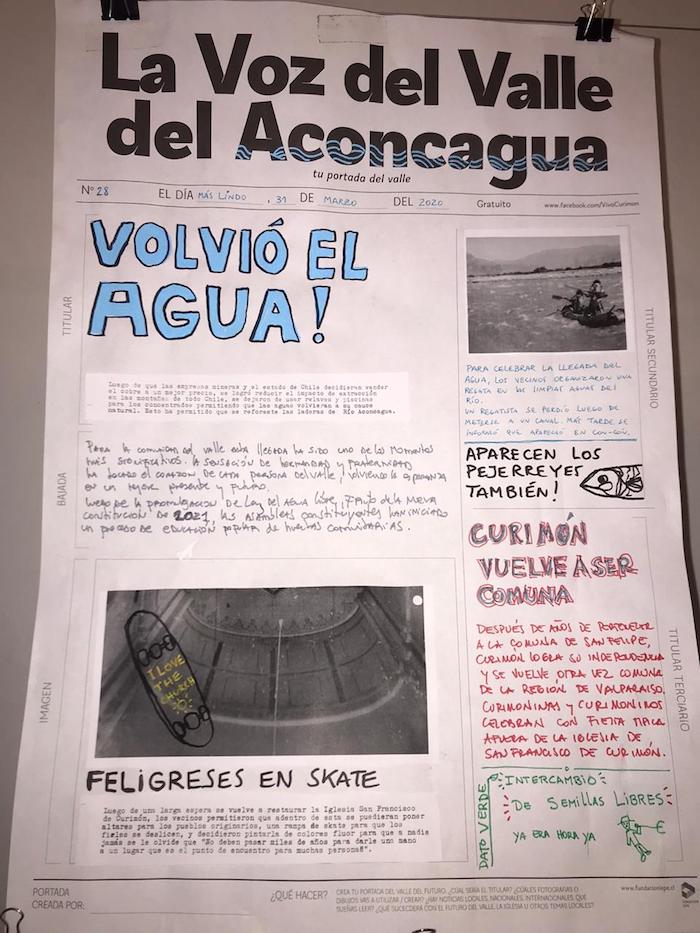 La Voz del Valle
del Aconcagua
tu portada del valle
Nº 28 EL DÍA MÁS LINDO, 31 DE MARZO DEL 2020 Gratuito www.facebook.com/VivoCurimon
TITULAR
VOLVIÓ EL
AGUA!
Luego de que las empresas mineras y el estado de Chile decidieran vender
el cobre a un mejor precio, se logró reducir el impacto de extracción
en las montañas de todo Chile, se dejaron de usar relaves y piscinas
para los concentrados permitiendo que las aguas volvieran a su cause
natural. Esto ha permitido que se reforeste las laderas de Río Aconcagua.
BAJADA
PARA LA COMUNIDAD DEL VALLE ESTA LLEGADA HA SIDO UNO DE LOS MOMENTOS
MÁS SIGNIFICATIVOS. LA SENSACIÓN DE HERMANDAD Y FRATERNIDAD
HA TOCADO EL CORAZÓN DE CADA PERSONA DEL VALLE, VOLVIENDO LA ESPERANZA
EN UN MEJOR PRESENTE Y FUTURO.
LUEGO DE LA PROMULGACIÓN DE LEY DEL AGUA LIBRE, FRUTO DE LA NUEVA
CONSTITUCIÓN DE 2021, LAS ASAMBLEAS CONSTITUYENTES HAN INICIADO
UN PROCESO DE EDUCACIÓN POPULAR DE HUERTAS COMUNITARIAS.
IMAGEN
I LOVE
THE
CHURCH
FELIGRESES EN SKATE
Luego de una larga espera se vuelve a restaurar la Iglesia San Francisco
de Curimón, los vecinos permitieron que adentro de esta se pudieran poner
altares para los pueblos originarios, una rampa de skate para que los
fieles se deslicen, y decidieron pintarla de colores fluor para que a nadie
jamás se le olvide que "No deben pasar miles de años para darle una mano
a un lugar que es el punto de encuentro para muchas personas".
TITULAR SECUNDARIO
PARA CELEBRAR LA LLEGADA DEL
AGUA, LOS VECINOS ORGANIZARON UNA
REGATA EN LAS LIMPIAS AGUAS DEL
RÍO.
UN REGATISTA SE PERDIÓ LUEGO DE
METERSE A UN CANAL. MÁS TARDE SE
INFORMÓ QUE APARECIÓ EN CON-CÓN.
APARECEN LOS
PEJERREYES
TAMBIÉN!
TITULAR TERCIARIO
CURIMÓN
VUELVE A SER
COMUNA
DESPUÉS DE AÑOS DE PERTENECER
A LA COMUNA DE SAN FELIPE,
CURIMÓN LOGRA SU INDEPENDENCIA
Y SE VUELVE OTRA VEZ COMUNA
DE LA REGIÓN DE VALPARAÍSO.
CURIMONINAS Y CURIMONINOS
CELEBRAN CON FIESTA
AFUERA DE LA IGLESIA DE
SAN FRANCISCO DE CURIMÓN.
DATO VERDE
INTERCAMBIO
DE SEMILLAS LIBRES
YA ERA HORA YA
PORTADA
CREADA POR:
¿QUÉ HACER?
CREA TU PORTADA DEL VALLE DEL FUTURO. ¿CUÁL SERÍA EL TITULAR? ¿CUÁLES FOTOGRAFÍAS O
DIBUJOS VAS A UTILIZAR / CREAR? ¿HAY NOTICIAS LOCALES, NACIONALES, INTERNACIONALES, QUE
SUEÑAS LEER? ¿QUÉ SUCEDERÁ CON EL FUTURO DEL VALLE, LA IGLESIA U OTROS TEMAS LOCALES?
www.fundacionlepe.cl